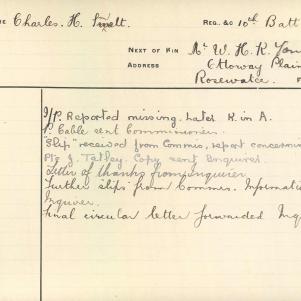 Charles. H. Smett. REG. &C 10th Batt
NEXT OF KIN Mr W. H. K.
ADDRESS Ottoway Plain
Rosewater.
I/P. Reported missing. Later K. in A.
P. Cable sent Commissioner
"Slip" received from Commis, report concerning
Pte J. Tatley. Copy sent Enquirer.
Letter of thanks from enquirer
Further slips from Commis. Informatio
Inquirer.
Final circular letter forwarded Inq